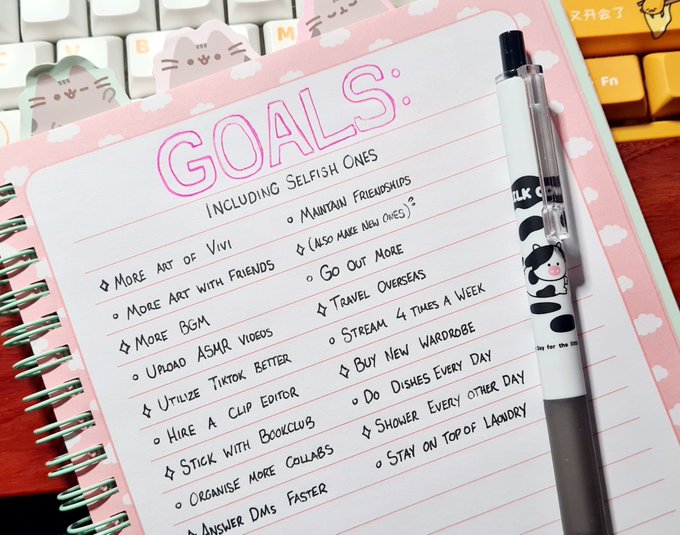 GOALS:
INCLUDING SELFISH ONES
MORE ART OF VIVI
MORE ART WITH FRIENDS
MORE BGM
UPLOAD ASMR VIDEOS
UTILIZE TIKTOK BETTER
HIRE A CLIP EDITOR
STICK WITH BOOKCLUB
ORGANISE MORE COLLABS
ANSWER DMS FASTER
MAINTAIN FRIENDSHIPS
(ALSO MAKE NEW ONES)?
GO OUT MORE
TRAVEL OVERSEAS
STREAM 4 TIMES A WEEK
BUY NEW WARDROBE
DO DISHES EVERY DAY
SHOWER EVERY OTHER DAY
STAY ON TOP OF LAONDRY
Day for the little
C
V
B
M
又开会了
Fn